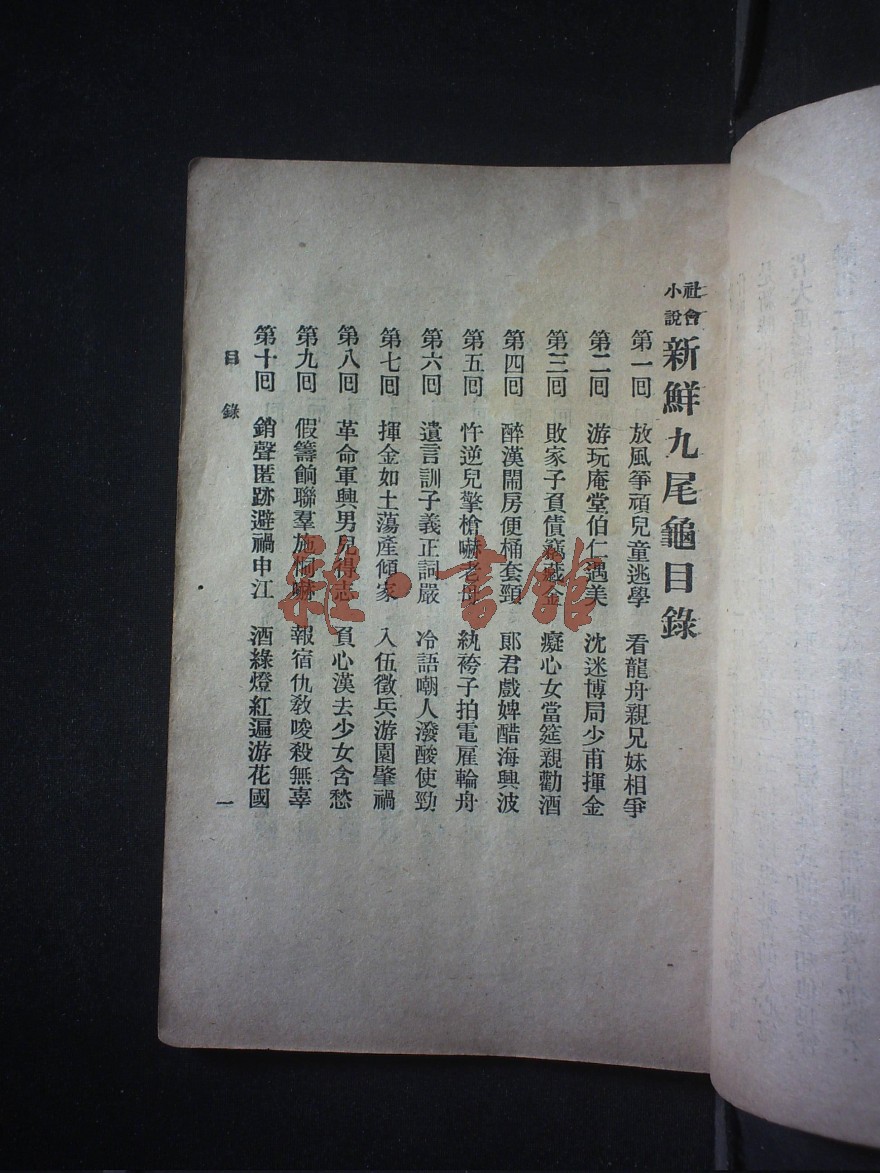 社會小說
新鮮九尾龜目錄
第一回 放風箏頑兒童逃學 看龍舟親兄妹相爭
第二回 游玩庵堂伯仁遇美 沈迷博局少甫揮金
第三回 敗家子負債竊藏金 癡心女當筵親勸酒
第四回 醉漢鬧房便桶套頸 郞君戲婢醋海興波
第五回 忤逆兒擎槍嚇老母 紈袴子拍電雇輪舟
第六回 遺言訓子義正詞嚴 冷語嘲人潑酸使勁
第七回 揮金如土蕩產傾家 入伍徵兵游園肇禍
第八回 革命軍興男兒得志 負心漢去少女含愁
第九回 假籌餉聯羣施恫嚇 報宿仇敎唆殺無辜
第十回 銷聲匿跡避禍申江 酒綠燈紅遍游花國
目錄
一
雜·書館